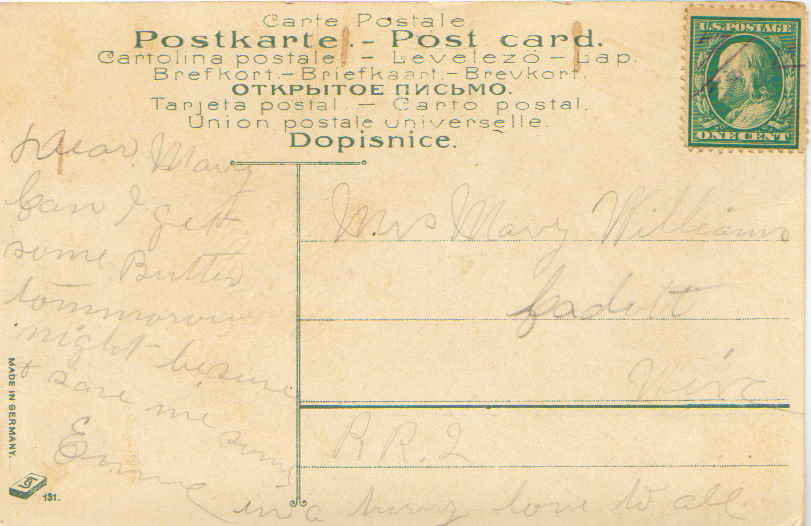 Carte Postale
Postkarte. - Post card.
Cartolina postale. - Levelező - Lap.
Brefkort. - Briefkaart. - Brevkort.
ОТКРЫТОЕ ПИСЬМО.
Tarjeta postal. - Carto postal.
Union postale universelle.
Dopisnice.
U.S. POSTAGE
ONE CENT
Dear Mary
Can I get
some Butter
tommorow
night besure
+ save me some
Emma
in a hurry love to all
Mrs Mary Williams
Cadott
Wisc
R R. 2
MADE IN GERMANY.
131.